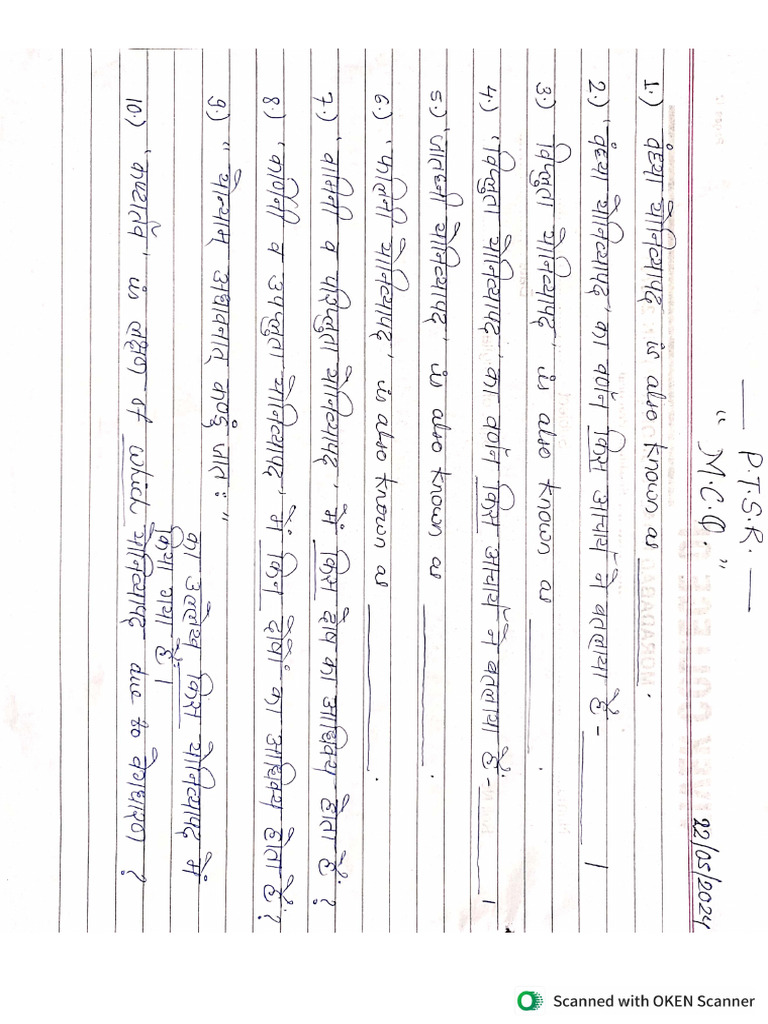 22/05/2024
— P.T.S.R. —
" M.C.Q. "
1.) वंध्या योनिव्यापद् is also known as ______.
2.) "वंध्या योनिव्यापद्" का वर्णन किस आचार्य ने बतलाया है- ______ ।
3.) विप्लुता योनिव्यापद् is also known as ______.
4.) "विप्लुता योनिव्यापद्" का वर्णन किस आचार्य ने बतलाया है- ______ ।
5.) "जातघ्नी योनिव्यापद्" is also known as ______.
6.) "फलिनी योनिव्यापद्" is also known as ______.
7.) "वामिनी व परिप्लुता योनिव्यापद्" में किस दोष का आधिक्य होता है ?
8.) "कर्णिनी व उपप्लुता योनिव्यापद्" में किन दोषों का आधिक्य होता है ?
9.) " योन्याम् अधावनात् कण्डूं जात : "
का उल्लेख किस योनिव्यापद् में
किया गया है ।
10.) "कष्टार्तव" is लक्षण of which योनिव्यापद् due to वेगधारण ?
Scanned with OKEN Scanner